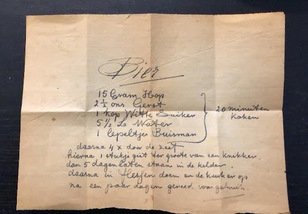 Bier
15 Gram Hop
2½ ons Gerst
1 kop Witte Suiker
5½ Lr Water
1 lepeltjer Buisman
20 minuten
koken
daarna 4 x door de zeef
hierna 1 stukje gist ter groote van een knikker
dan 5 dagen laten staan in de kelder
daarna in flesjes doen en de kurken op
na een paar dagen gereed voor gebruik